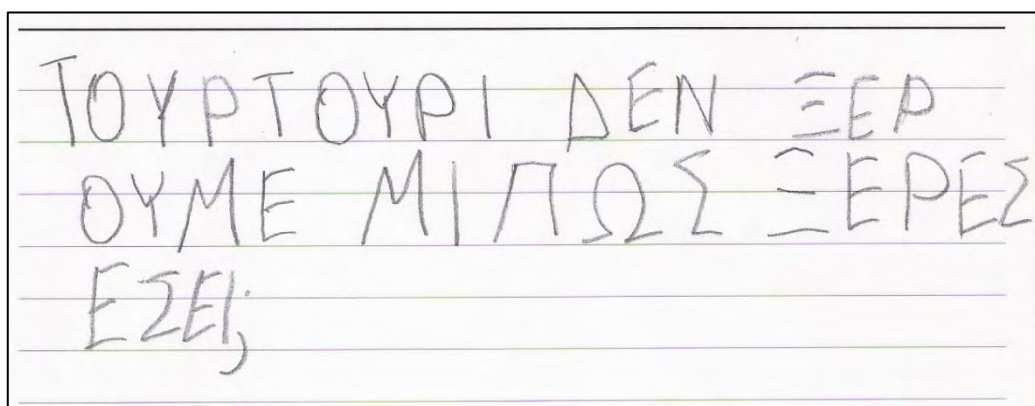 ΤΟΥΡΤΟΥΡΙ ΔΕΝ ΞΕΡ
ΟΥΜΕ ΜΙΠΩΣ ΞΕΡΕΣ
ΕΣΕΙ;